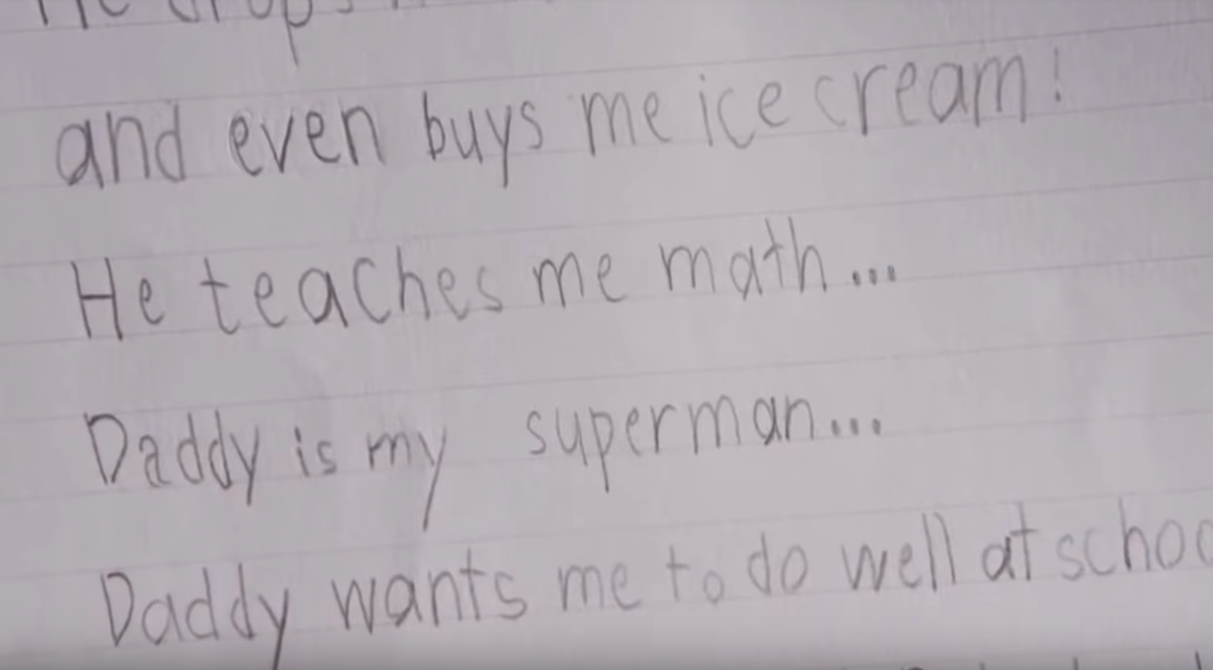 and even buys me ice cream!
He teaches me math...
Daddy is my superman...
Daddy wants me to do well at